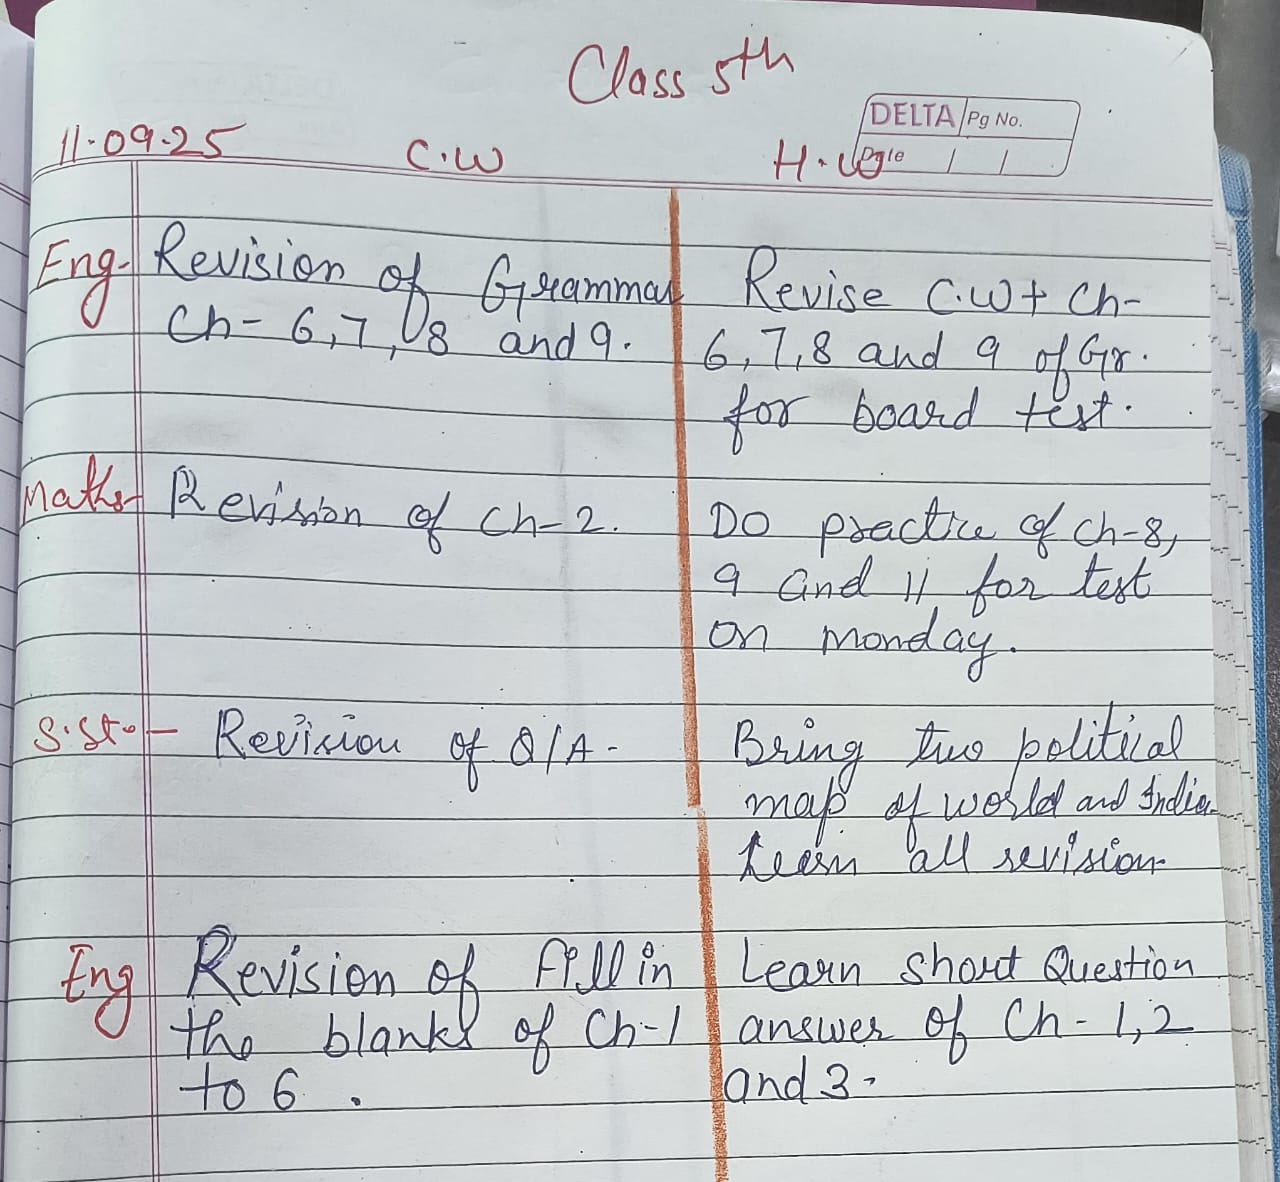 Class 5th
DELTA Pg No.
Date / /
11.09.25 C.W H.W
Eng. Revision of Grammar
Ch- 6,7,8 and 9.
Revise C.W + Ch-
6,7,8 and 9 of Gr.
for board test.
Maths Revision of Ch-2.
Do practice of Ch-8,
9 and 11 for test
on monday.
S.St. - Revision of Q/A -
Bring two political
map of world and India
Learn all revision
Eng Revision of Fill in
the blanks of Ch-1
to 6.
Learn short Question
answer of Ch - 1,2
and 3.